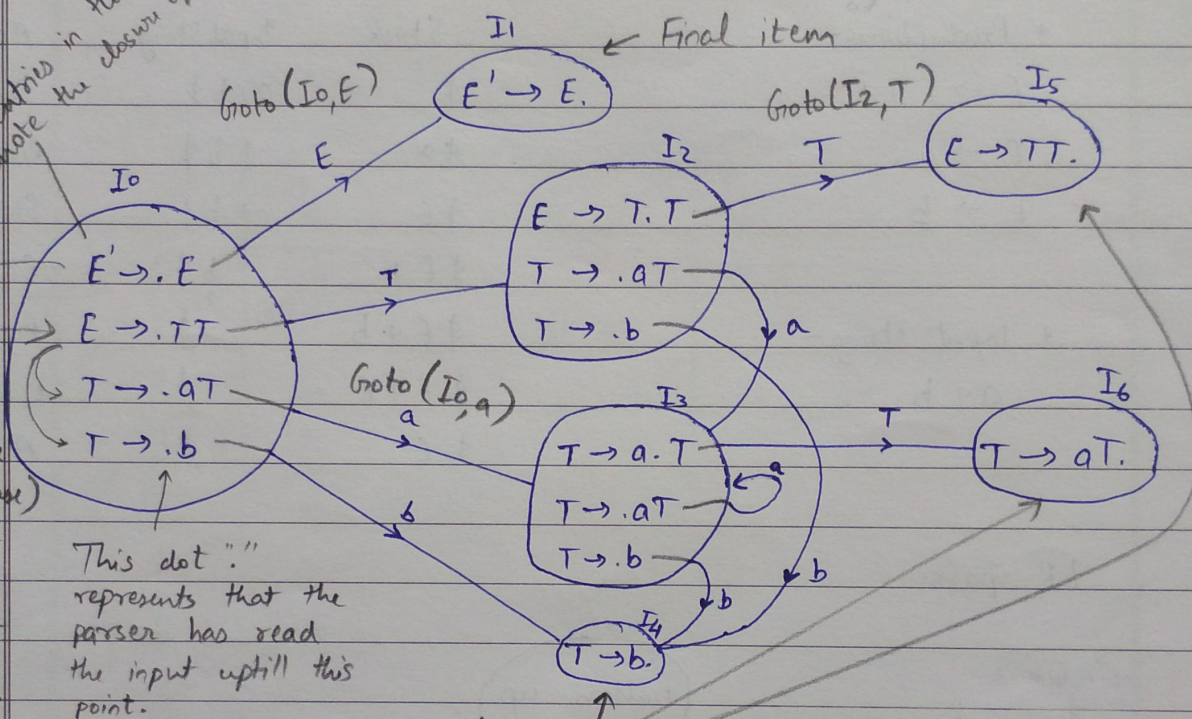 in the
the closure
note
I1
← Final item
E' → E.
Goto(I0,E)
E
Goto(I2,T)
I5
T
E → TT.
I0
E' → .E
E → .TT
T → .aT
T → .b
T
I2
E → T.T
T → .aT
T → .b
a
b
Goto(I0,a)
a
I3
T → a.T
T → .aT
T → .b
a
b
T
I6
T → aT.
b
I4
T → b.
This dot "."
represents that the
parser has read
the input uptill this
point.